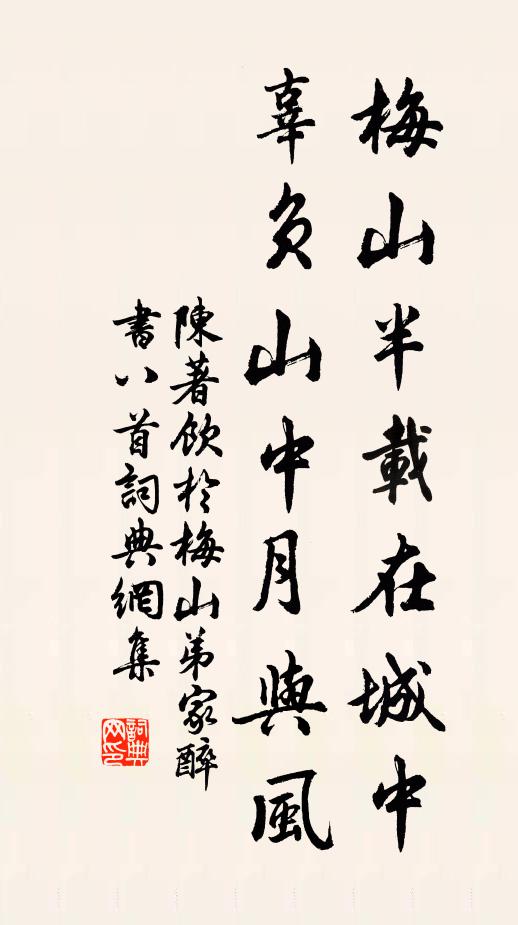 梅山半載在城中
辜負山中月與風
陳著飲於梅山弟家醉
書八首詞典網集
詞典
网印